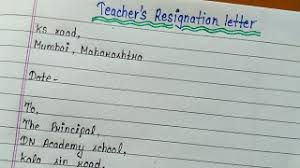 Teacher's Resignation letter
KS road,
Mumbai, Maharashtra
Date-
To,
The Principal,
DN Academy school,
Kala sin road,